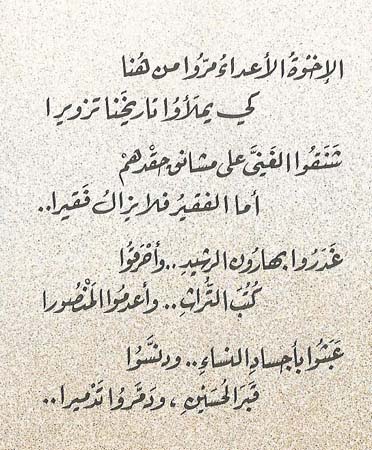 الإخْوةُ الأعداءُ مرّوا من هُنا
كي يملَأوُا تاريخَنا تزويرا
شَنَقُوا الغَنِيَّ على مشانقِ حِقْدهمْ
أما الفقيرُ فلا يزالُ فَقيرا..
غَدَروا بهارُون الرشيدِ.. وأحْرَقُوا
كُتُبَ التُّراثِ.. وأعدمُوا المَنْصُورا
عَبَثُوا بأجسادِ النساءِ.. ودنَّسُوا
قبرَ الحُسَيْنِ، ودَمَّروُا تَدْميرا..